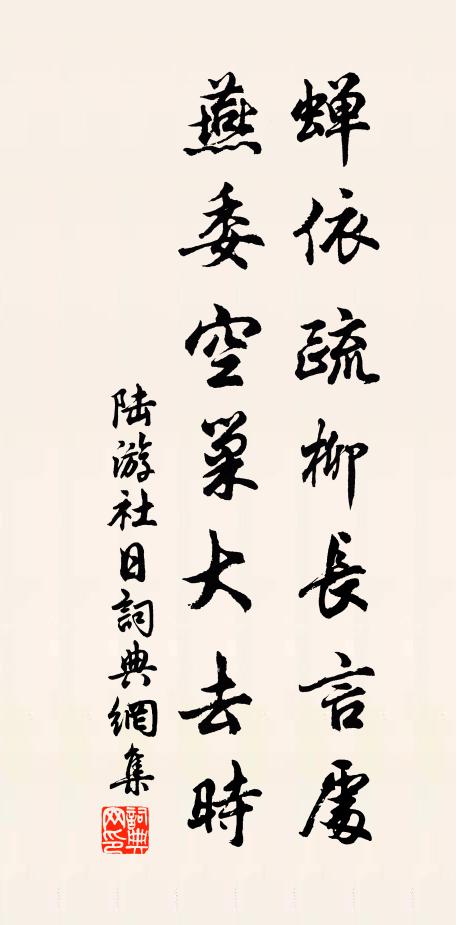 蝉依疏柳長言處
燕委空巢大去時
陸游社日詞典網集
詞典網印